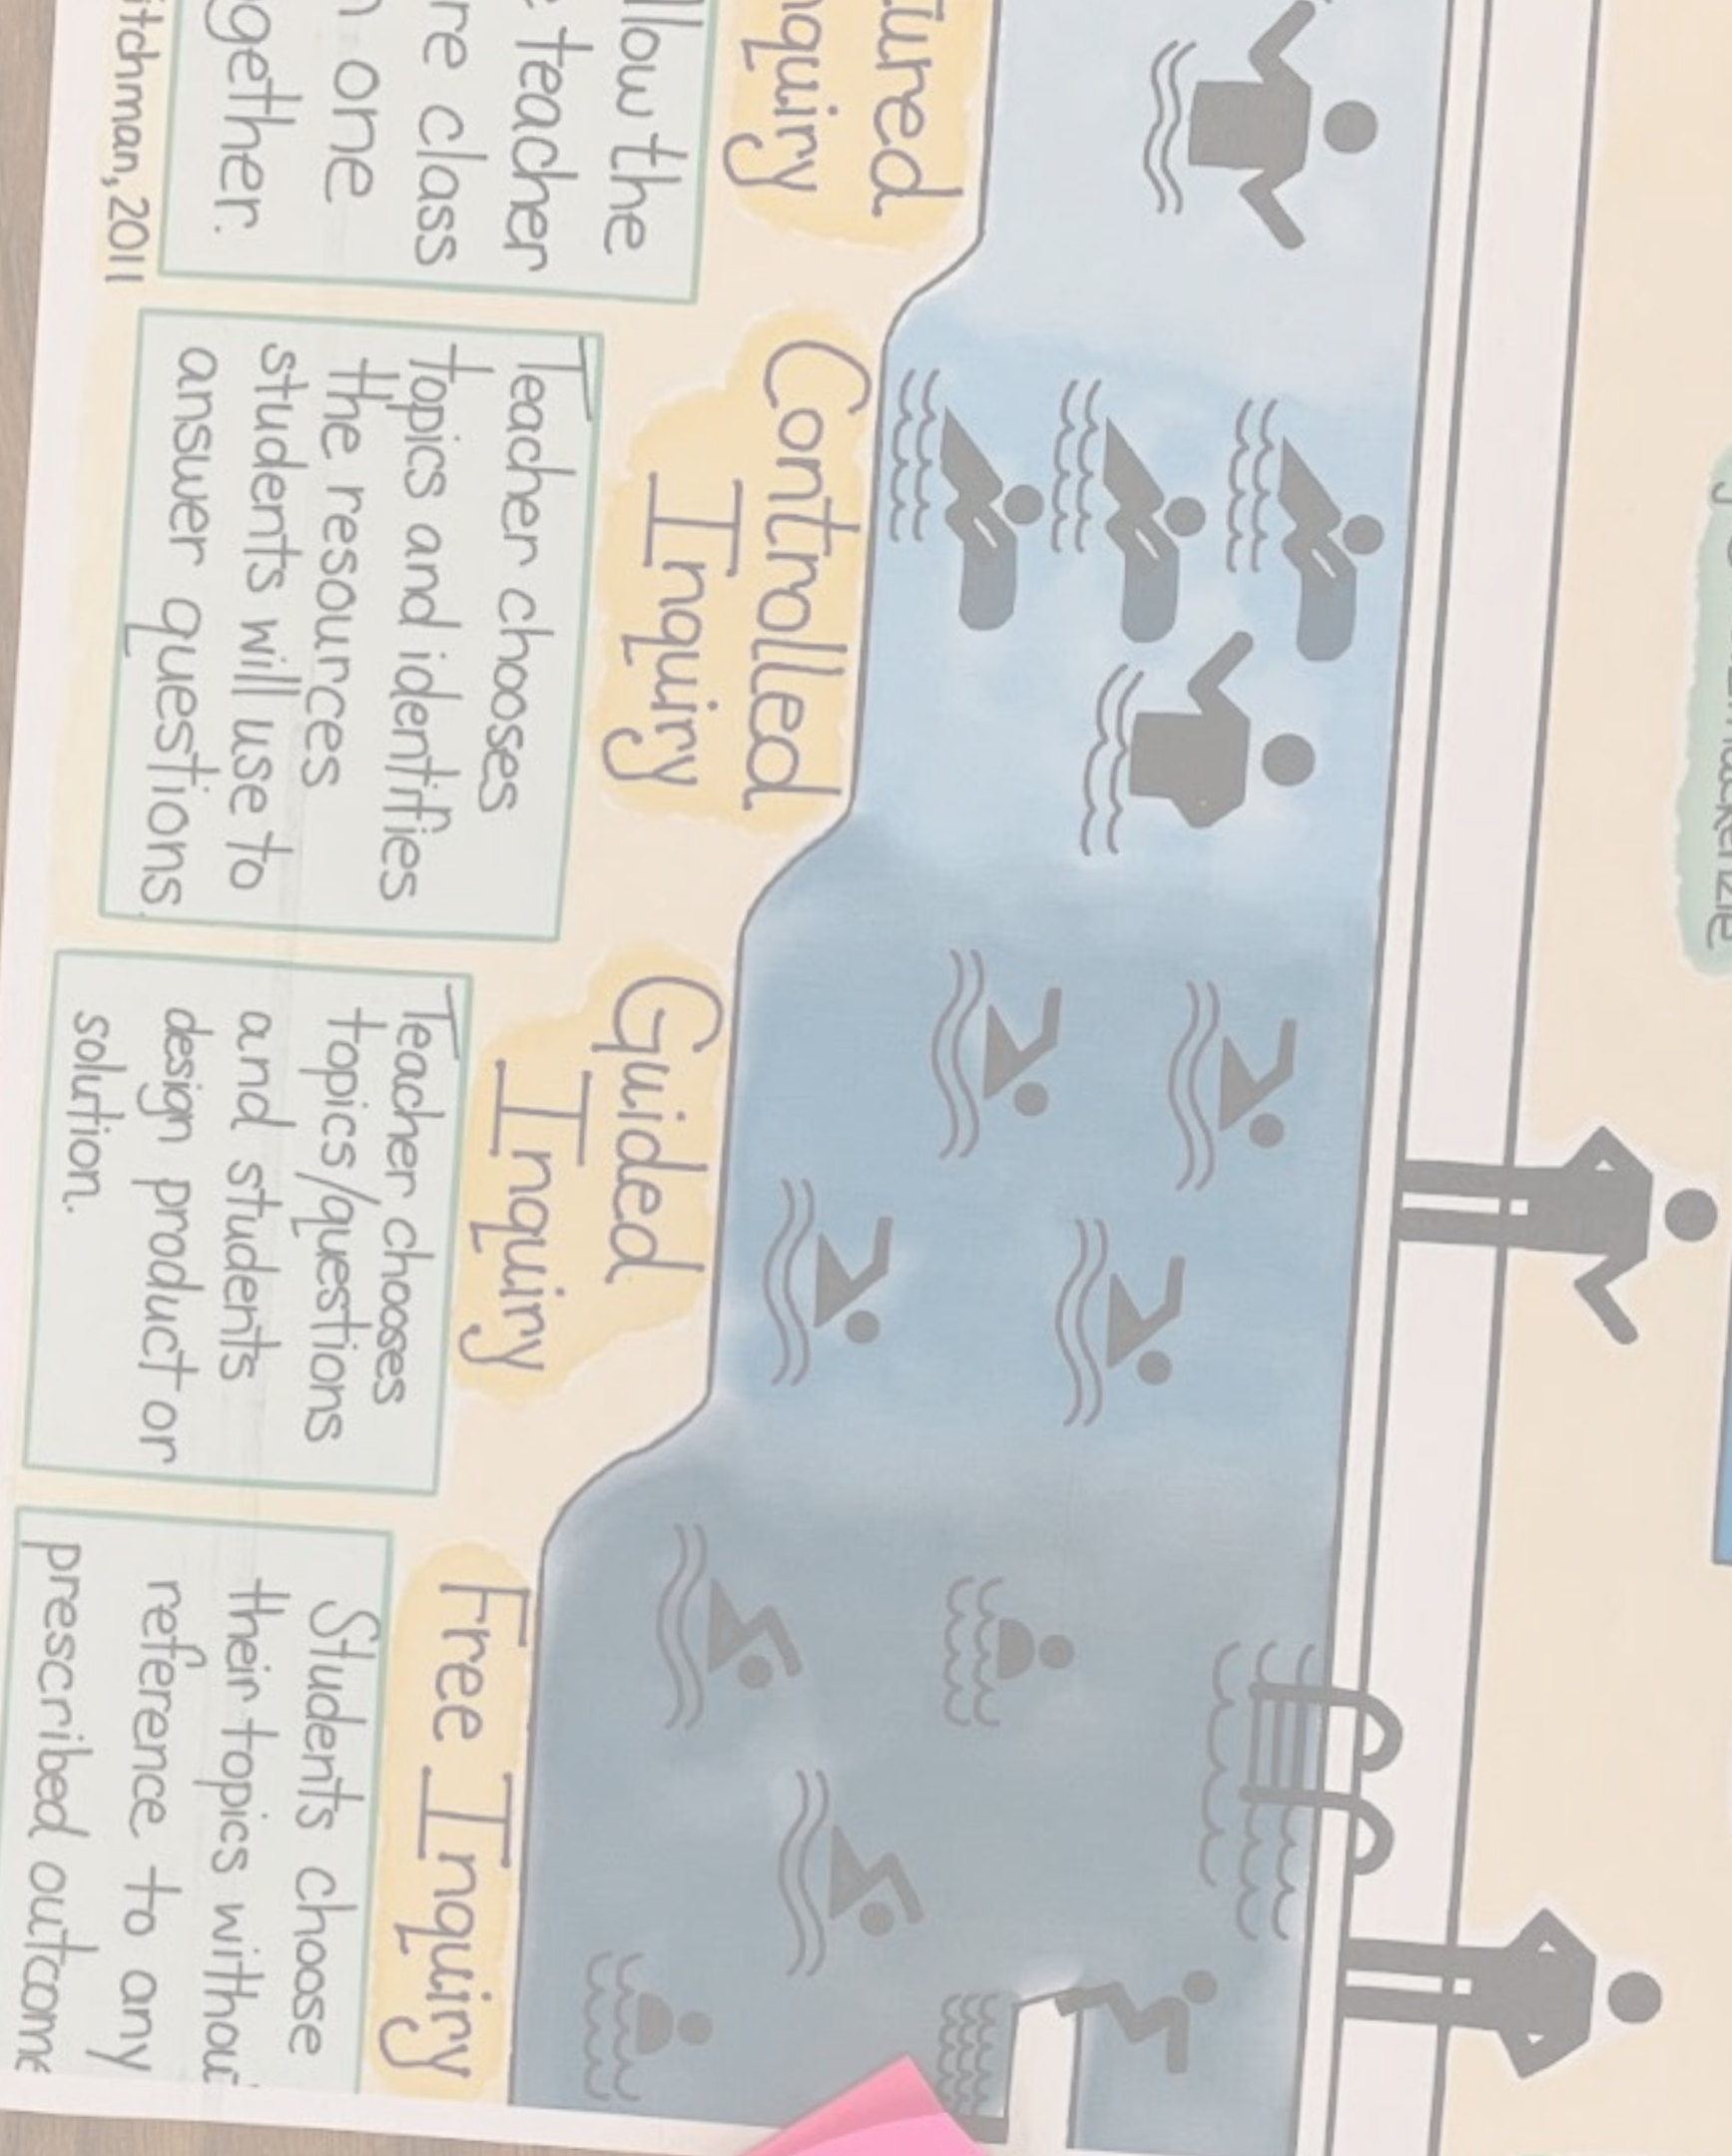 nquiry
llow the
teacher
re class
one
gether.
itchman, 2011
Controlled
Inquiry
Teacher chooses
topics and identifies
the resources
students will use to
answer questions.
Guided
Inquiry
Teacher chooses
topics/questions
and students
design product or
solution.
Free Inquiry
Students choose
their topics withou
reference to any
prescribed outcome